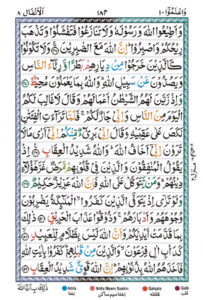 وَاعْلَمُوْٓا ۱۰ ۱۸۳ الْاَنْفَال ۸
وَاَطِيْعُوا اللّٰهَ وَرَسُوْلَهٗ وَلَا تَنَازَعُوْا فَتَفْشَلُوْا وَتَذْهَبَ
رِيْحُكُمْ وَاصْبِرُوْا ؕ اِنَّ اللّٰهَ مَعَ الصّٰبِرِيْنَ ۚ وَلَا تَكُوْنُوْا
كَالَّذِيْنَ خَرَجُوْا مِنْ دِيَارِهِمْ بَطَرًا وَّرِئَآءَ النَّاسِ
وَيَصُدُّوْنَ عَنْ سَبِيْلِ اللّٰهِ ؕ وَاللّٰهُ بِمَا يَعْمَلُوْنَ مُحِيْطٌ
وَاِذْ زَيَّنَ لَهُمُ الشَّيْطٰنُ اَعْمَالَهُمْ وَقَالَ لَا غَالِبَ لَكُمُ
الْيَوْمَ مِنَ النَّاسِ وَاِنِّيْ جَارٌ لَّكُمْ ۚ فَلَمَّا تَرَآءَتِ الْفِئَتٰنِ
نَكَصَ عَلٰى عَقِبَيْهِ وَقَالَ اِنِّيْ بَرِيْٓءٌ مِّنْكُمْ اِنِّيْٓ اَرٰى مَا لَا
تَرَوْنَ اِنِّيْٓ اَخَافُ اللّٰهَ ؕ وَاللّٰهُ شَدِيْدُ الْعِقَابِ اِذْ
يَقُوْلُ الْمُنٰفِقُوْنَ وَالَّذِيْنَ فِيْ قُلُوْبِهِمْ مَّرَضٌ غَرَّ هٰٓؤُلَآءِ
دِيْنُهُمْ ؕ وَمَنْ يَّتَوَكَّلْ عَلَى اللّٰهِ فَاِنَّ اللّٰهَ عَزِيْزٌ حَكِيْمٌ
وَلَوْ تَرٰٓى اِذْ يَتَوَفَّى الَّذِيْنَ كَفَرُوا ۙ الْمَلٰٓئِكَةُ يَضْرِبُوْنَ
وُجُوْهَهُمْ وَاَدْبَارَهُمْ ۚ وَذُوْقُوْا عَذَابَ الْحَرِيْقِ ذٰلِكَ
بِمَا قَدَّمَتْ اَيْدِيْكُمْ وَاَنَّ اللّٰهَ لَيْسَ بِظَلَّامٍ لِّلْعَبِيْدِ
كَدَاْبِ اٰلِ فِرْعَوْنَ ۙ وَالَّذِيْنَ مِنْ قَبْلِهِمْ ؕ كَفَرُوْا بِاٰيٰتِ اللّٰهِ
فَاَخَذَهُمُ اللّٰهُ بِذُنُوْبِهِمْ ؕ اِنَّ اللّٰهَ قَوِيٌّ شَدِيْدُ الْعِقَابِ
ذٰلِكَ بِاَنَّ اللّٰهَ